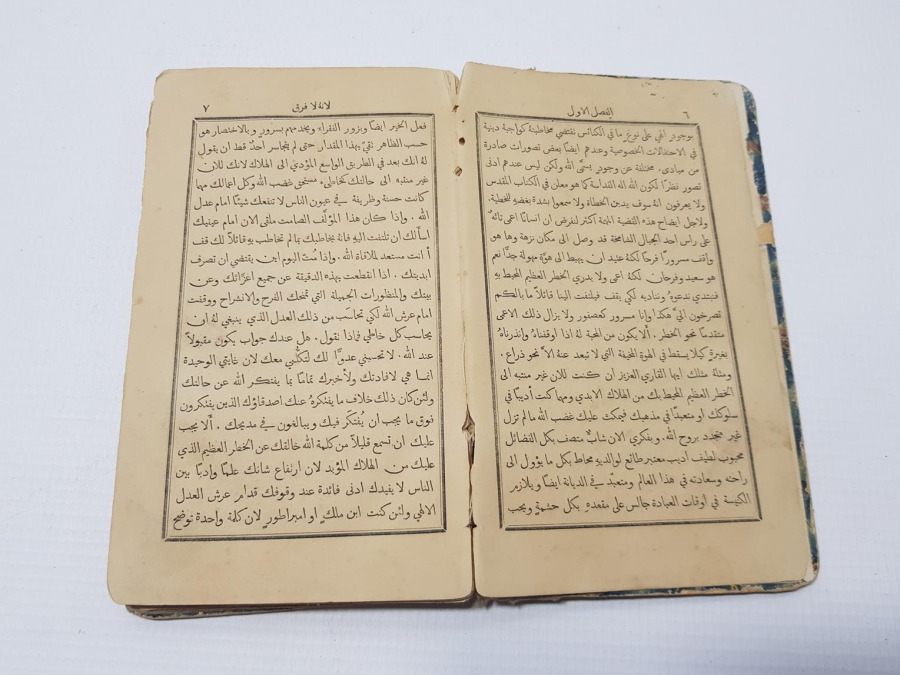 ٦
الفصل الاول
بوجودٍ الهي على نوعٍ ما في الكنائس تقتضي مخاطبتهُ كواجبة دينية
في الاحتفالات الخصوصية وعندهم ايضاً بعض تصورات صادرة
من مبادىء مختلفة عن وجودٍ يسمَّى الله ولكن ليس عندهم ادنى
تصور نظرًا لكون الله اله القداسة كما هو معلن في الكتاب المقدس
ولا يعرفون انهُ سوف يدين الخطاة ولا سمعوا بشدة بغضهِ للخطية.
ولاجل ايضاح هذه القضية المهمة اكثر لنفرض ان انسانًا اعمى تائهٌ
على راس احد الجبال الشامخة قد وصل الى مكان نزهة وها هو
واقف مسرورًا فرحًا لكنهُ عتيد ان يهبط الى هوَّة مهولة جدًّا نعم
هو سعيد وفرحان لكنهُ اعمى ولا يدري الخطر العظيم المحيط بهِ
فنبتدي ندعوهُ ونناديه لكي يقف فيلتفت الينا قائلاً ما بالكم
تصرخون اليَّ هكذا وانا مسرور كعصفور ولا يزال ذلك الاعمى
متقدمًا نحو الخطر. ألا يكون من المحبة لهُ اذا اوقفناهُ وانذرناهُ
بغيرةٍ كيلا يسقط في الهوة المخيفة التي لا تبعد عنهُ الاَّ نحو ذراع.
ومثلهُ مثلك ايها القاري العزيز ان كنت للان غير منتبه الى
الخطر العظيم المحيط بك من الهلاك الابدي ومهما كنت أديبًا في
سلوكك او متعبدًا في مذهبك فيمكث عليك غضب الله ما لم تزل
غير متجدد بروح الله. وبفكري الان شابٌّ متصف بكل الفضائل
محبوب لطيف اديب معتبر طائع لوالديهِ محاط بكل ما يؤول الى
راحته وسعادته في هذا العالم ومتعبد في الديانة ايضًا ويلازم
الكنيسة في اوقات العبادة جالس على مقعدهِ بكل حشمةٍ ويحب
لانهُ لا فرق
٧
فعل الخير ايضًا ويزور الفقراء ويخدمهم بسرورٍ وبالاختصار هو
حسب الظاهر تقيٌّ بهذا المقدار حتى لم يتجاسر احدٌ قط ان يقول
لهُ انك بعد في الطريق الواسع المؤدي الى الهلاك لانك للان
غير منتبه الى حالتك كخاطي مستحق غضب الله وكل اعمالك مهما
كانت حسنة وظريفة في عيون الناس لا تنفعك شيئًا امام عدل
الله. واذا كان هذا المؤلَّف الصامت ملقى الان امام عينيك
اسألك ان تلتفت اليهِ فانهُ يخاطبك بما لم تخاطب بهِ قائلاً لك قف
أ انت مستعد لملاقاة الله. واذا مُتَّ اليوم اين يقتضي ان تصرف
ابديتك. اذا انقطعت بهذه الدقيقة عن جميع اعزَّائك وعن
بيتك والمنظورات الجميلة التي تمنحك الفرح والانشراح ووقفت
امام عرش الله لكي تحاسَب من ذلك العدل الذي ينبغي لهُ ان
يحاسب كل خاطي فماذا نقول. هل عندك جواب يكون مقبولاً
عند الله. لا تحسبني عدوًّا لك لتكلُّمي معك لان غايتي الوحيدة
انما هي لافادتك ولأخبرك تمامًا بما يفتكر الله عن حالتك
ولئن كان ذلك خلاف ما يفتكرهُ عنك اصدقاؤك الذين يفتكرون
فوق ما يجب ان يُفتكَر فيك ويبالغون في مديحك. ألا يجب
عليك ان تسمع قليلاً من كلمة الله خالقك عن الخطر العظيم الذي
عليك من الهلاك المؤبد لان ارتفاع شانك علميًّا وادبيًّا بين
الناس لا يفيدك ادنى فائدة عند وقوفك قدام عرش العدل
الالهي ولئن كنت ابن ملكٍ او امبراطور لان كلمة واحدة توضح